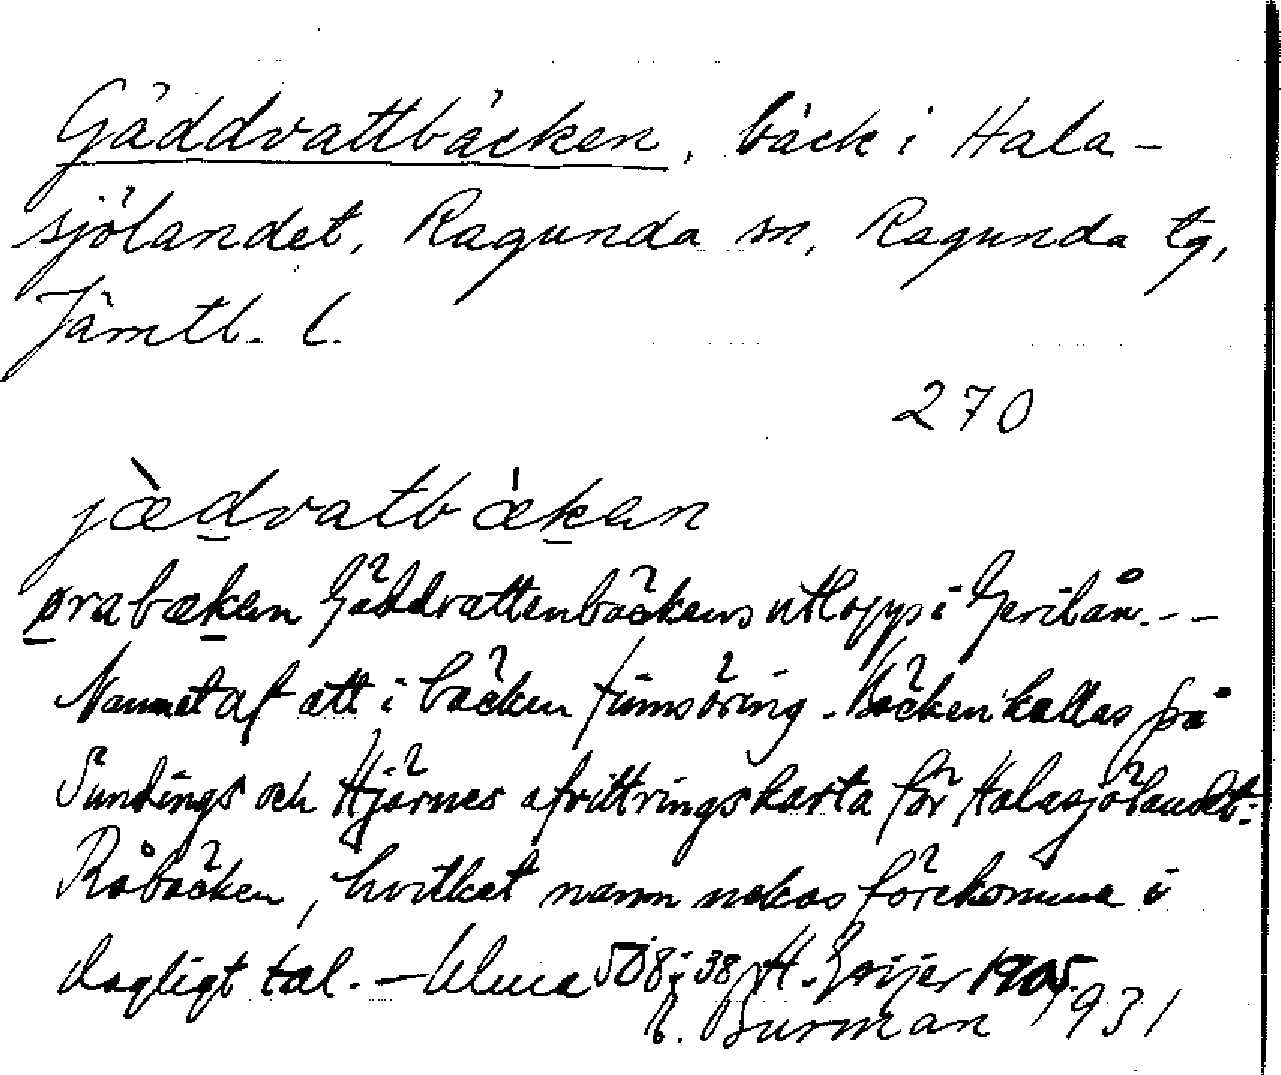 Gäddvattbäcken, bäck i Hala-
sjölandet, Ragunda sn, Ragunda tg,
Jämtl. l.
270
jæ̀dvatbǽken
ørabæken Gäddvattenbäckens utlopp i Gerilån. - -
Namnet af att i bäcken finns öring. Bäcken kallas på
Sundings och Hjörnes afvittringskarta för Halasjölandet:
Råbäcken, hvilket namn nekas förekomma i
dagligt tal. - Ulma 508:38 H. Geijer 1905.
E. Burman 1931